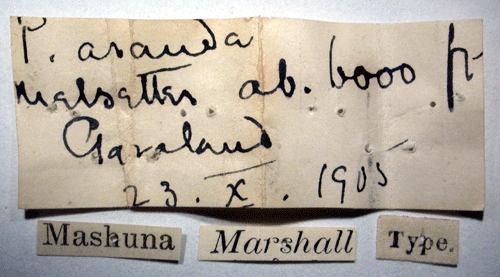 P. aranda
Melsetter ab. 6000 ft
Gazaland
23. X. 1905
Mashuna
Marshall
Type.